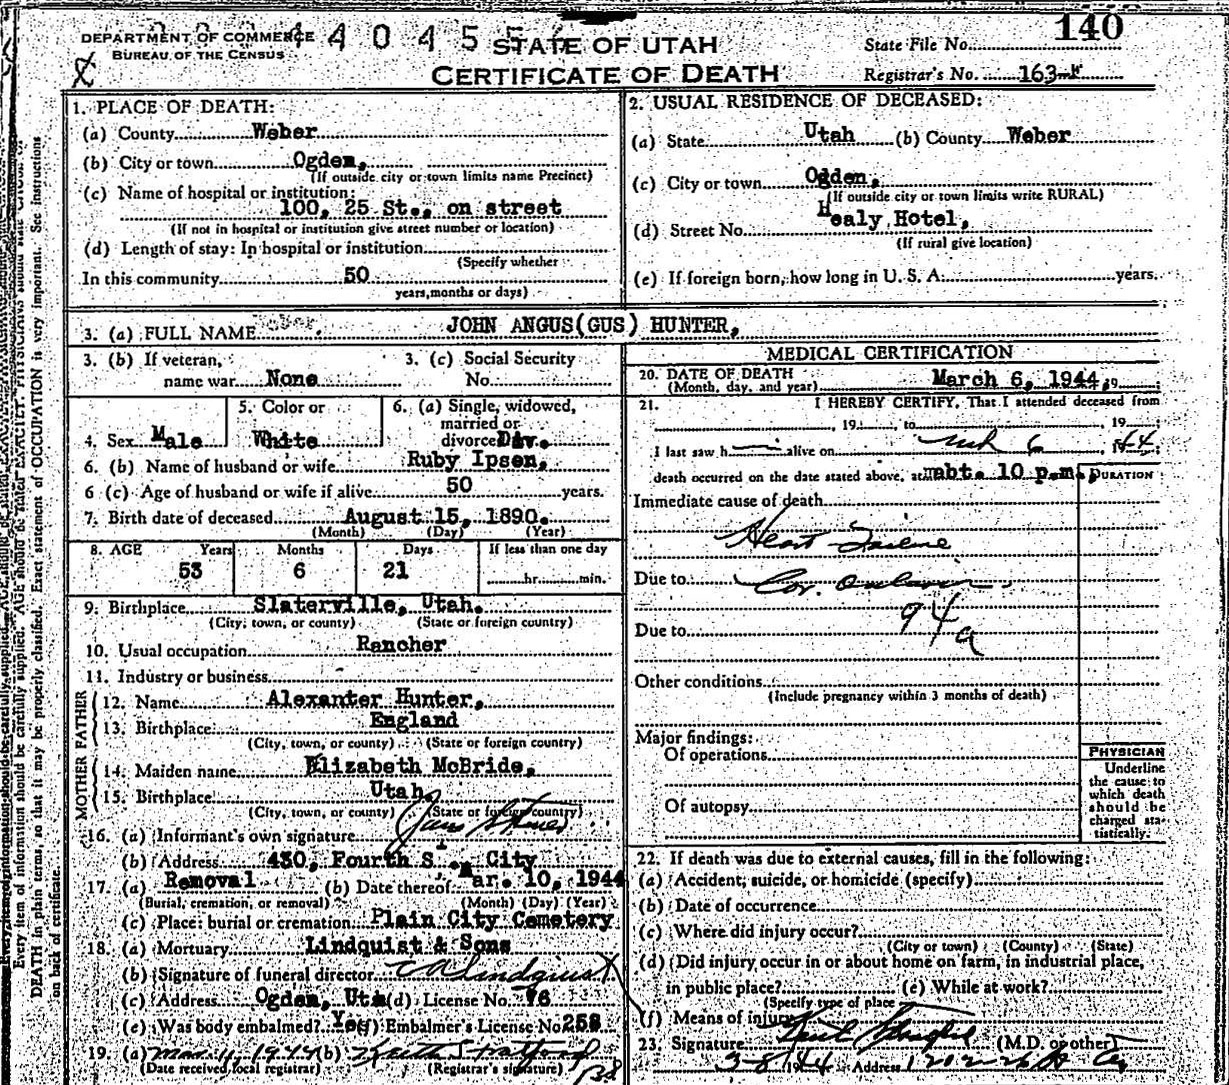 DEPARTMENT OF COMMERCE
BUREAU OF THE CENSUS
STATE OF UTAH
CERTIFICATE OF DEATH
140
State File No.
Registrar's No. 163
1. PLACE OF DEATH:
(a) County Weber
(b) City or town Ogden,
(If outside city or town limits name Precinct)
(c) Name of hospital or institution:
100, 25 St., on street
(If not in hospital or institution give street number or location)
(d) Length of stay: In hospital or institution
(Specify whether
In this community 50
years, months or days)
2. USUAL RESIDENCE OF DECEASED:
(a) State Utah (b) County Weber
(c) City or town Ogden,
(If outside city or town limits write RURAL)
(d) Street No. Healy Hotel,
(If rural give location)
(e) If foreign born, how long in U. S. A. years.
3. (a) FULL NAME JOHN ANGUS(GUS) HUNTER,
3. (b) If veteran, name war None
3. (c) Social Security No.
4. Sex Male
5. Color or White
6. (a) Single, widowed, married or divorced Div.
6. (b) Name of husband or wife Ruby Ipsen,
6 (c) Age of husband or wife if alive 50 years.
7. Birth date of deceased August 15, 1890.
(Month) (Day) (Year)
8. AGE Years Months Days If less than one day
53 6 21 hr. min.
9. Birthplace Slaterville, Utah.
(City, town, or county) (State or foreign country)
10. Usual occupation Rancher
11. Industry or business
FATHER
12. Name Alexanter Hunter,
13. Birthplace England
(City, town, or county) (State or foreign country)
MOTHER
14. Maiden name Elizabeth McBride,
15. Birthplace Utah.
(City, town, or county) (State or foreign country)
16. (a) Informant's own signature
(b) Address 430, Fourth S., City
17. (a) Removal (b) Date thereof Mar. 10, 1944
(Burial, cremation, or removal) (Month) (Day) (Year)
(c) Place: burial or cremation Plain City Cemetery
18. (a) Mortuary Lindquist & Sons
(b) Signature of funeral director Lindquist
(c) Address Ogden, Uta (d) License No. 76
(e) Was body embalmed? Yes (f) Embalmer's License No 258
19. (a) Mar. 11, 1944 (b) Keith Stratford
(Date received local registrar) (Registrar's signature)
MEDICAL CERTIFICATION
20. DATE OF DEATH
(Month, day, and year) March 6, 1944, 19
21. I HEREBY CERTIFY, That I attended deceased from
, 19 , to , 19
I last saw h alive on Mch 6 1944
death occurred on the date stated above, at abt. 10 p.m.,
DURATION
Immediate cause of death
Heart Failure
Due to Cor. occlusion
94a
Due to
Other conditions
(Include pregnancy within 3 months of death)
Major findings:
Of operations
Of autopsy
PHYSICIAN
Underline
the cause to
which death
should be
charged sta-
tistically.
22. If death was due to external causes, fill in the following:
(a) Accident, suicide, or homicide (specify)
(b) Date of occurrence
(c) Where did injury occur?
(City or town) (County) (State)
(d) Did injury occur in or about home on farm, in industrial place,
in public place? (e) While at work?
(Specify type of place
(f) Means of injury
23. Signature (M.D. or other)
3-8 1944 Address
Every item of information should be carefully supplied. AGE should be stated EXACTLY.
DEATH in plain terms, so that it may be properly classified. Exact statement of OCCUPATION is very important. See instructions
on back of certificate.